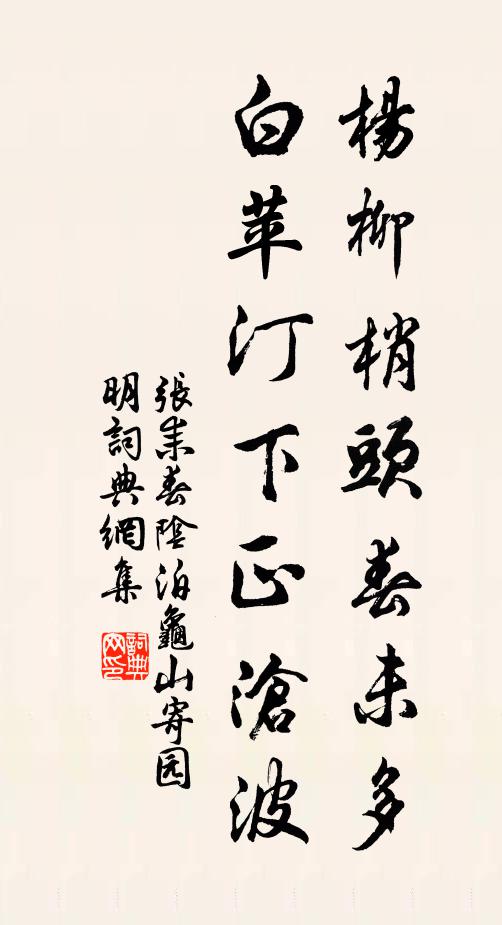 楊柳梢頭春未多
白苹汀下正滄波
張耒春陰泊龜山寄园
明詞典網集
詞典
网印